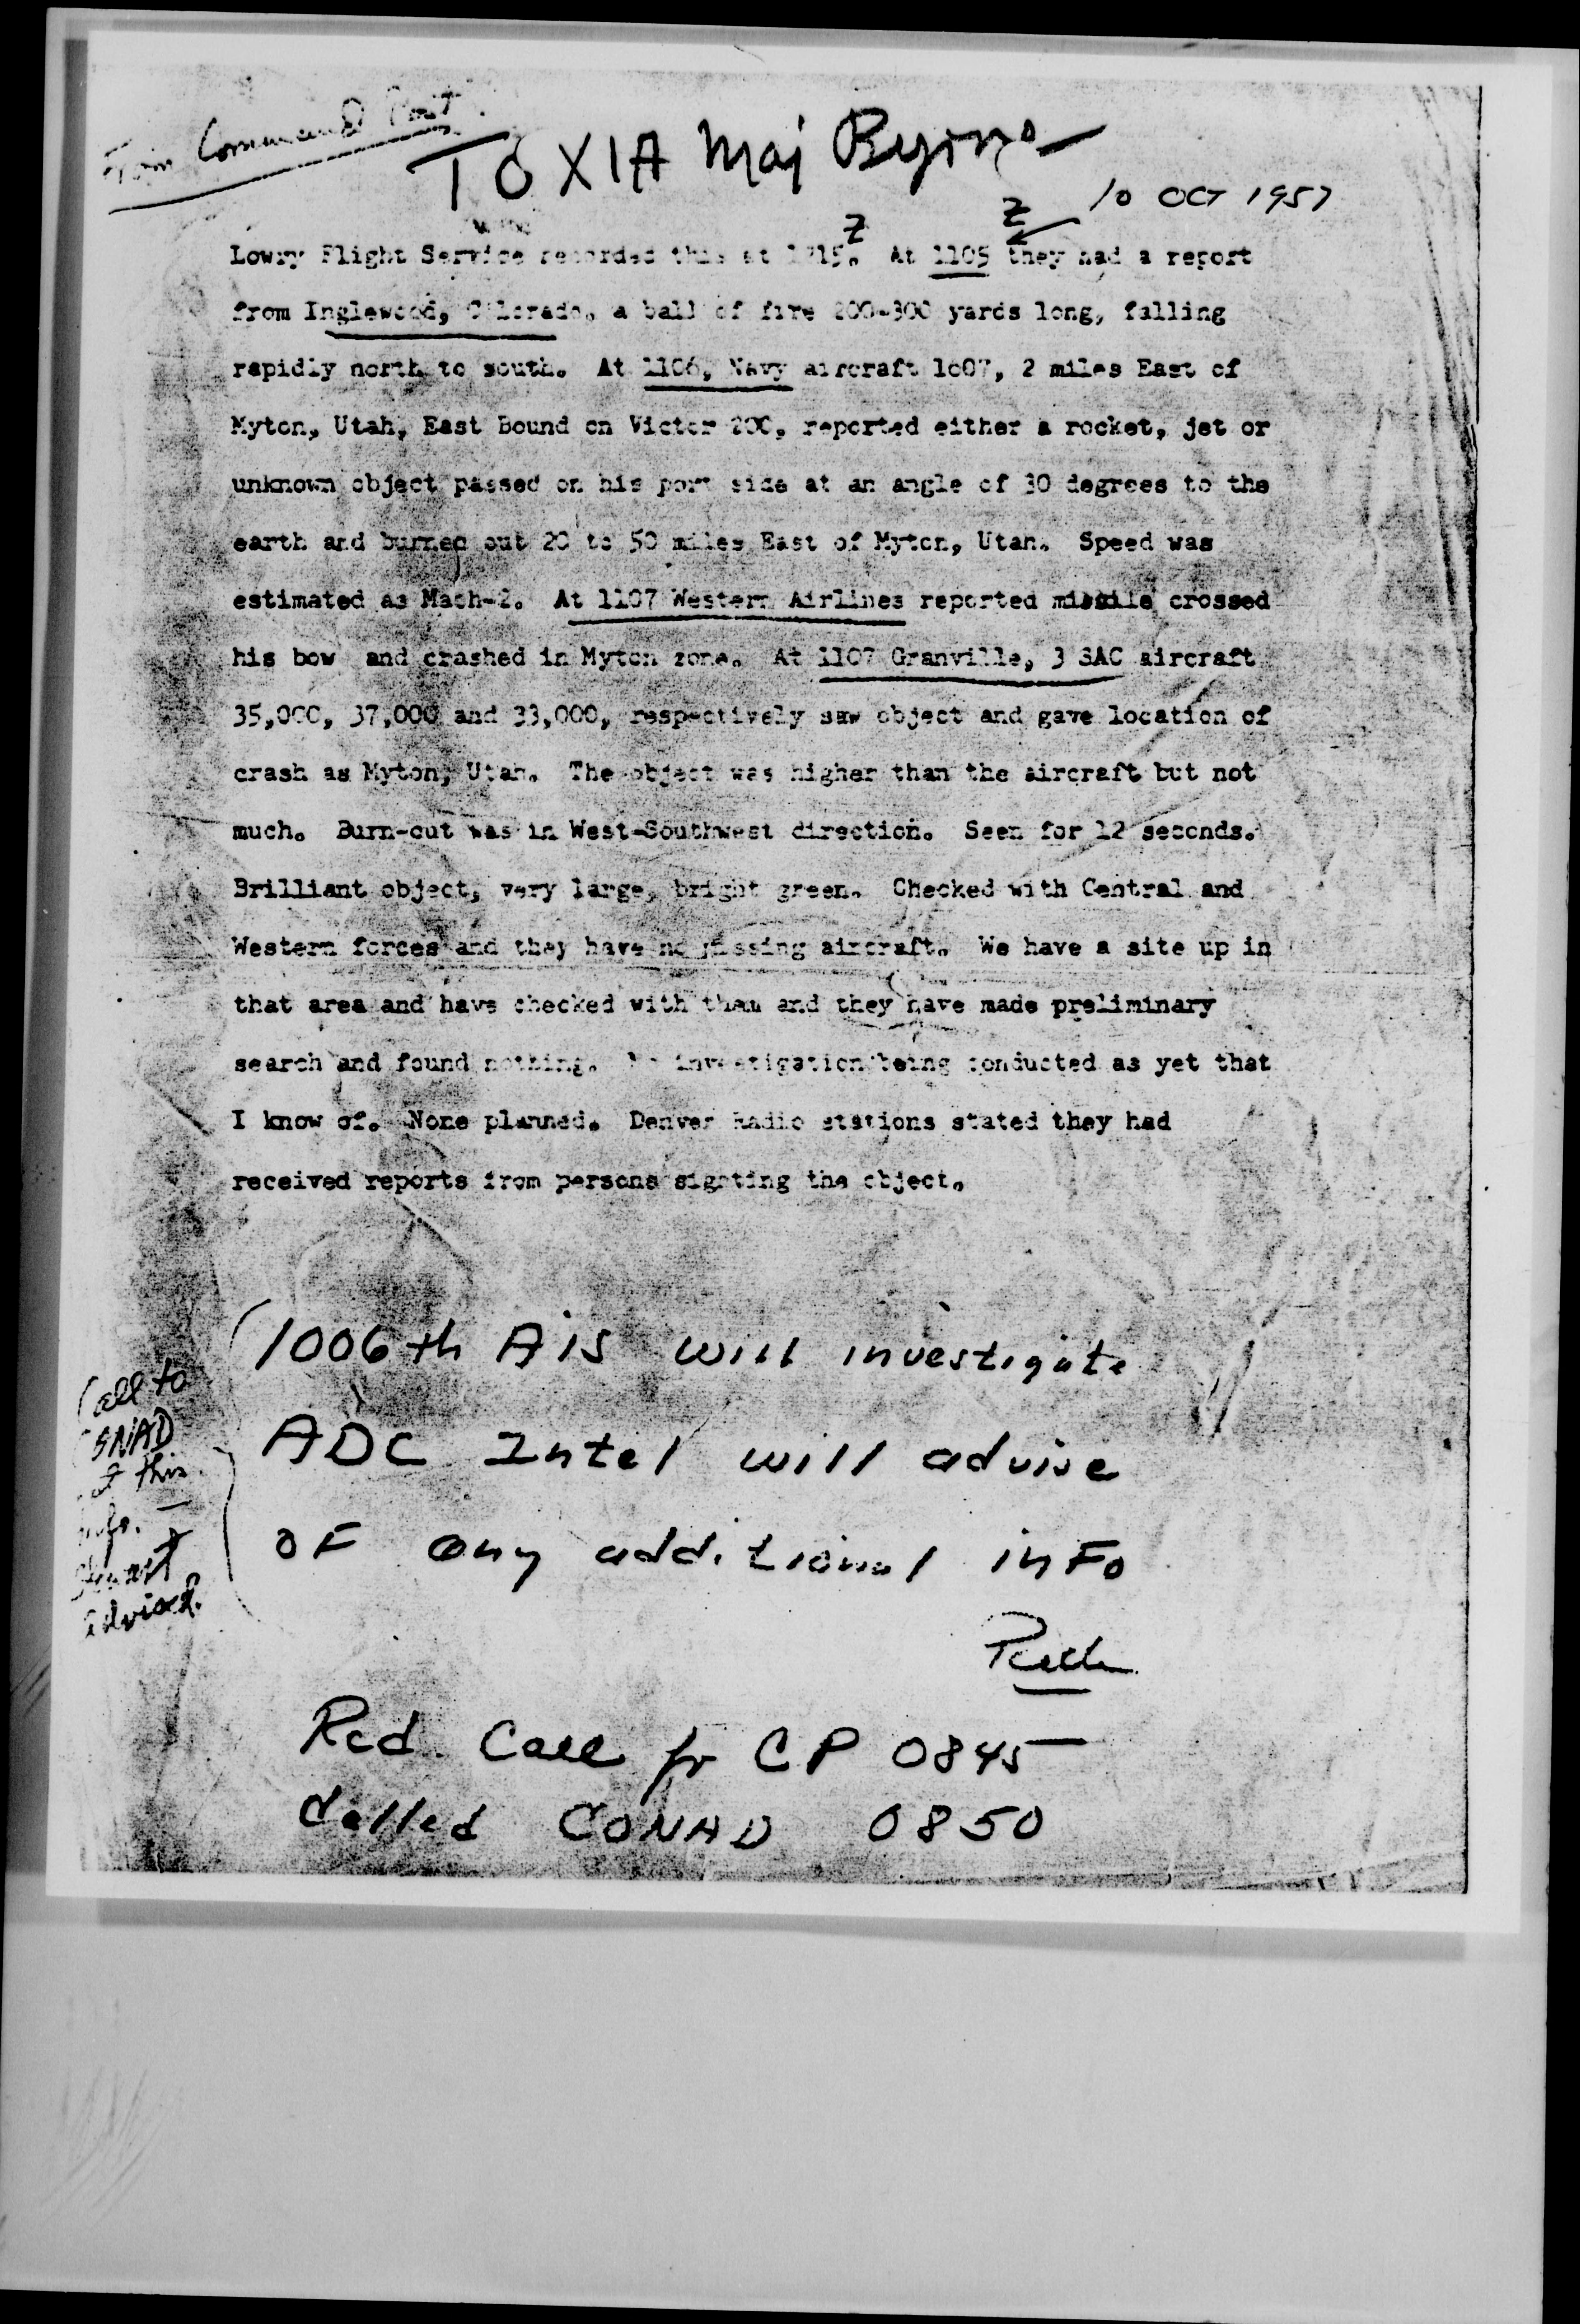 From Command Post
TO XIA Maj Byrne
10 OCT 1957
Z Z
Lowry Flight Service recorded this at At 1105 they had a report
from Inglewood, Colorado, a ball of fire 200-300 yards long, falling
rapidly north to south. At 1106, Navy aircraft 2 miles East of
Myton, Utah, East Bound on Victor 200, reported either a rocket, jet or
unknown object passed on his port side at an angle of 30 degrees to the
earth and burned out 20 to 50 miles East of Myton, Utah. Speed was
estimated as Mach-2. At 1107 Western Airlines reported missile crossed
his bow and crashed in Myton zone. At 1107 Granville, 3 SAC aircraft
35,000, 37,000 and 33,000, respectively saw object and gave location of
crash as Myton, Utah. The object was higher than the aircraft but not
much. Burn-out was in West-Southwest direction. Seen for 12 seconds.
Brilliant object, very large, bright green. Checked with Central and
Western forces and they have no missing aircraft. We have a site up in
that area and have checked with them and they have made preliminary
search and found nothing. No investigation being conducted as yet that
I know of. None planned. Denver Radio stations stated they had
received reports from persons sighting the object.
(1006th AIS will investigate
ADC Intel will advise
OF any additional inFo
Call to
this
info.
advised.
Rcd. Call fr CP 0845
Called CONAD 0850